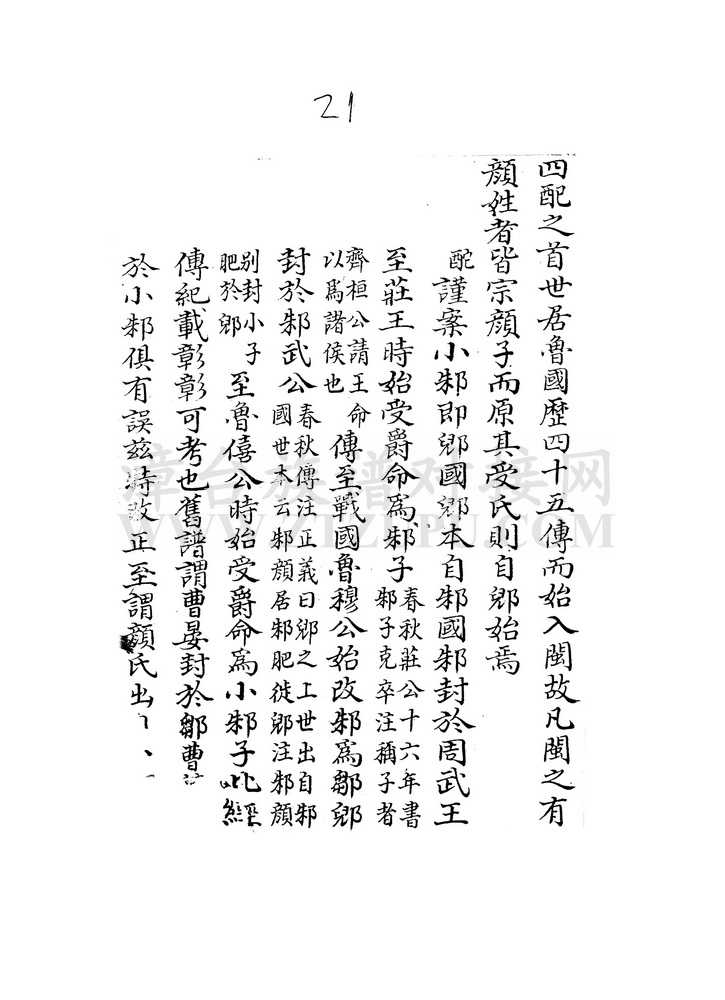 21
四配之首世居魯國歷四十五傳而始入閩故凡閩之有
顔姓者皆宗顔子而原其受氏則自郳始焉
配謹案小邾即郳國郳本自邾國邾封於周武王
至莊王時始受爵命爲邾子春秋莊公十六年書邾子克卒注稱子者
齊桓公請王命以爲諸侯也傳至戰國魯穆公始改邾爲鄒郳
封於邾武公春秋傳注正義曰郳之上世出自邾國世本云邾顔居邾肥徙郳注邾顔
别封小子肥於郳至魯僖公時始受爵命爲小邾子此經
傳紀載彰彰可考也舊譜謂曹晏封於鄒曹
於小邾俱有誤兹特改正至謂顔氏出
漳台族谱对接网
WWW.ZTZUPU.COM